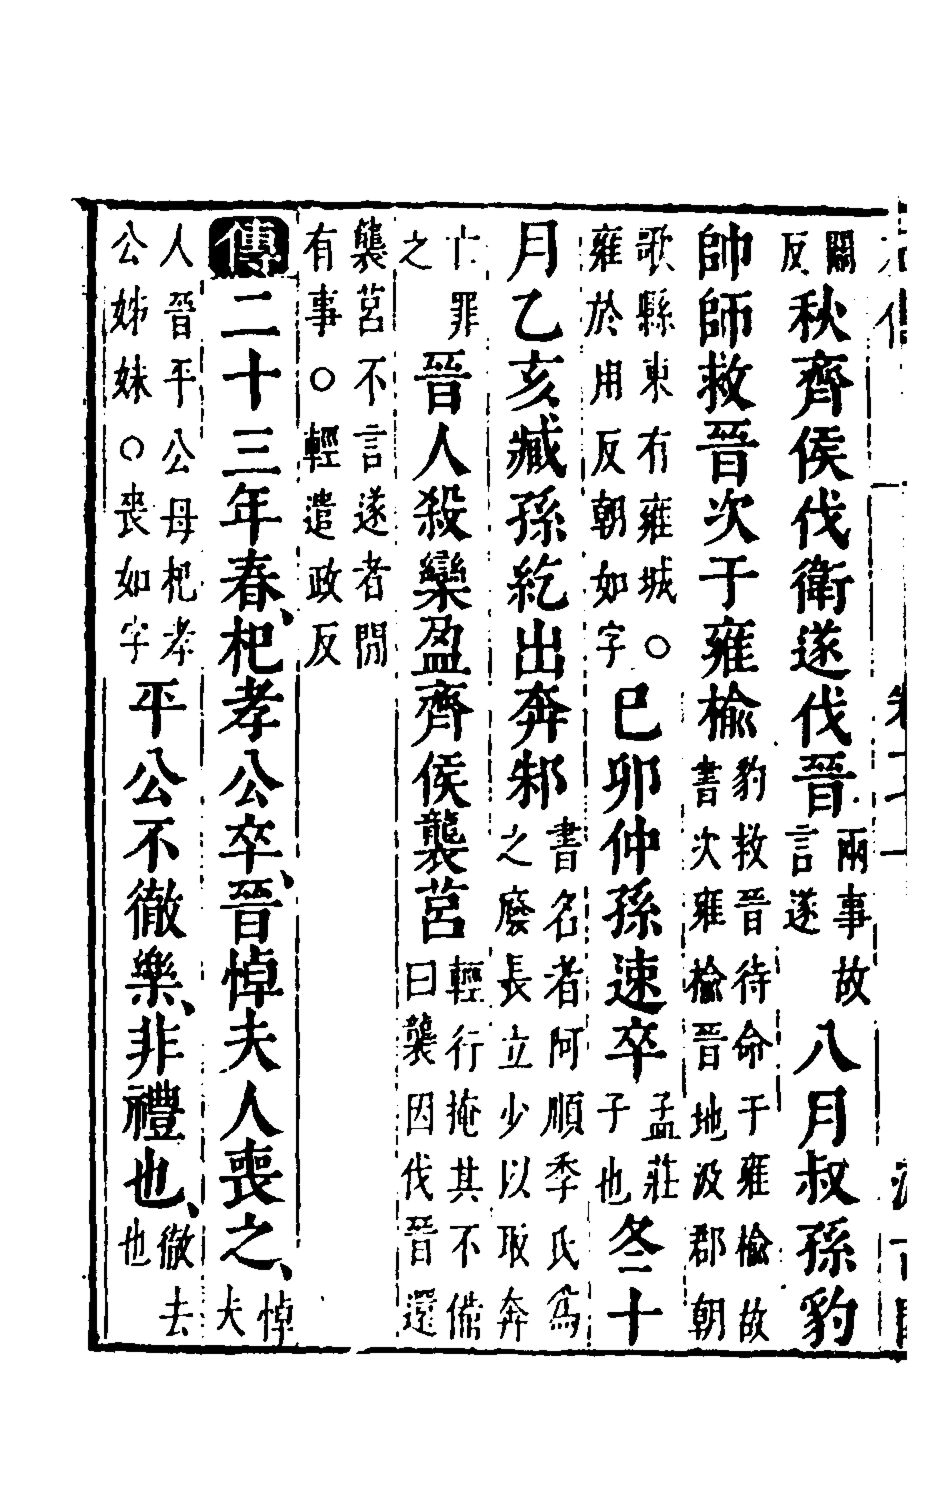 關反秋齊侯伐衛遂伐晉兩事故言遂八月叔孫豹
帥師救晉次于雍榆豹救晉待命于雍榆故書次雍榆晉地汲郡朝
歌縣東有雍城○雍於用反朝如字己卯仲孫速卒孟莊子也冬十
月乙亥臧孫紇出奔邾書名者阿順季氏為之廢長立少以取奔
亡罪之晉人殺欒盈齊侯襲莒輕行掩其不備曰襲因伐晉還
襲莒不言遂者閒有事○輕遣政反
傳二十三年春、杞孝公卒、晉悼夫人喪之、悼夫
人晉平公母杞孝公姊妹○喪如字平公不徹樂、非禮也、徹去也